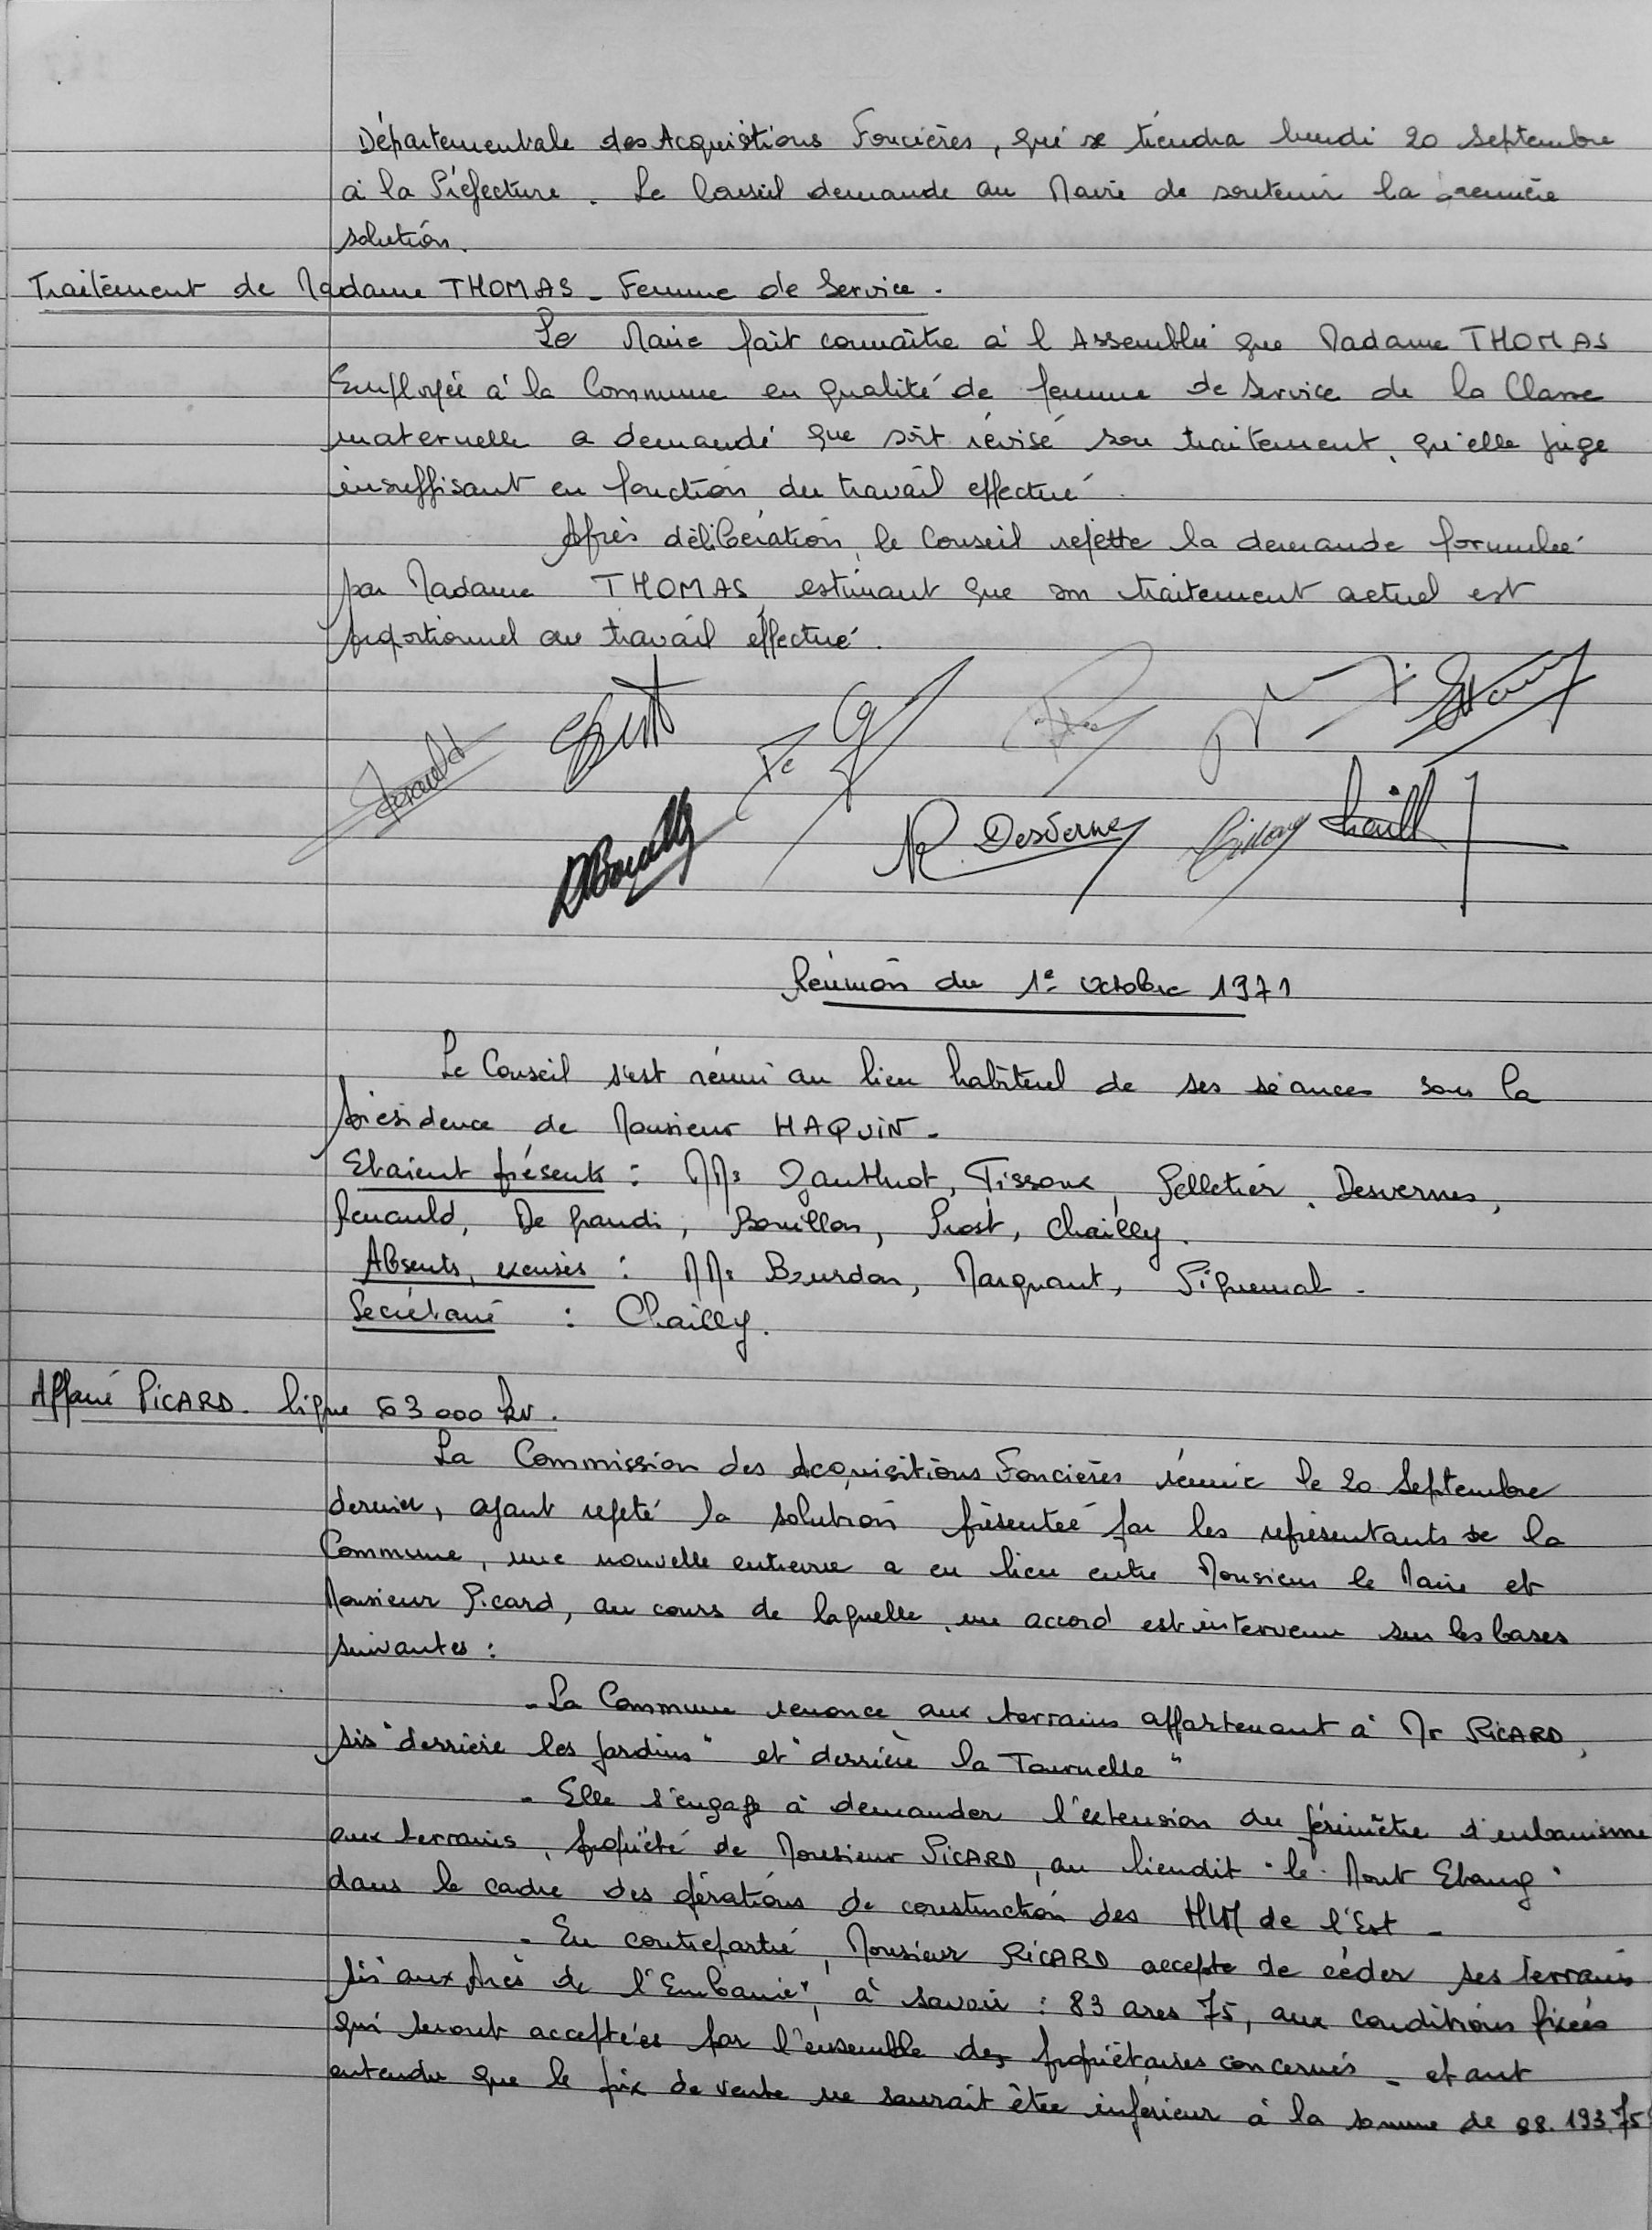 Départementale des Acquisitions Foncières, qui se tiendra lundi 20 Septembre
à la Préfecture. Le Conseil demande au Maire de soutenir la première
solution.
Traitement de Madame THOMAS - Femme de Service.
Le Maire fait connaître à l'Assemblée que Madame THOMAS
Employée à la Commune en qualité de femme de Service de la Classe
maternelle a demandé que soit révisé son traitement, qu'elle juge
insuffisant en fonction du travail effectué.
Après délibération, le Conseil rejette la demande formulée
par Madame THOMAS, estimant que son traitement actuel est
proportionnel au travail effectué.
Renauld
N. Desvernes
Chailly
Réunion du 1e octobre 1971
Le Conseil s'est réuni au lieu habituel de ses séances sous la
présidence de Monsieur HAQUIN.
Etaient présents : MMs Zanthnot, Tissoux, Pelletier, Desvernes,
Renauld, De Grandi, Bouillon, Prost, Chailly.
Absents, excusés : MMs Bourdon, Marquant, Piquemal.
Secrétaire : Chailly.
Affaire PICARD. ligne 63 000 kv.
La Commission des Acquisitions Foncières réunie le 20 Septembre
dernier, ayant rejeté la solution présentée par les représentants de la
Commune, une nouvelle entrevue a eu lieu entre Monsieur le Maire et
Monsieur Picard, au cours de laquelle, un accord est intervenu sur les bases
suivantes :
- La Commune renonce aux terrains appartenant à Mr PICARD,
sis "derrière les jardins" et "derrière la Tournelle"
- Elle s'engage à demander l'extension du périmètre d'urbanisme
aux terrains, propriété de Monsieur PICARD, au lieudit "le Mont Etang"
dans le cadre des opérations de construction des HLM de l'Est -
- En contrepartie, Monsieur PICARD accepte de céder ses terrains
sis "aux Prés de l'Embanie", à savoir : 83 ares 75, aux conditions fixées
qui seront acceptées par l'ensemble des propriétaires concernés - etant
entendu que le prix de vente ne saurait être inférieur à la somme de 88.193.75